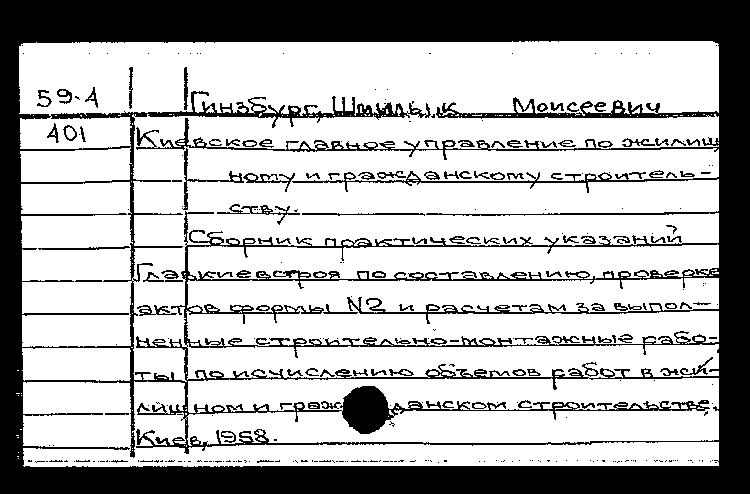 59-4 Гинзбург, Шмилык Моисеевич
401 Киевское главное управление по жилищ
ному и гражданскому строитель-
ству.
Сборник практических указаний
Главкиевстроя по составлению, проверке
актов формы N2 и расчетам за выпол-
ненные строительно-монтажные рабо-
ты по исчислению объемов работ в жи-
лищном и гражданском строительстве.
Киев, 1958.